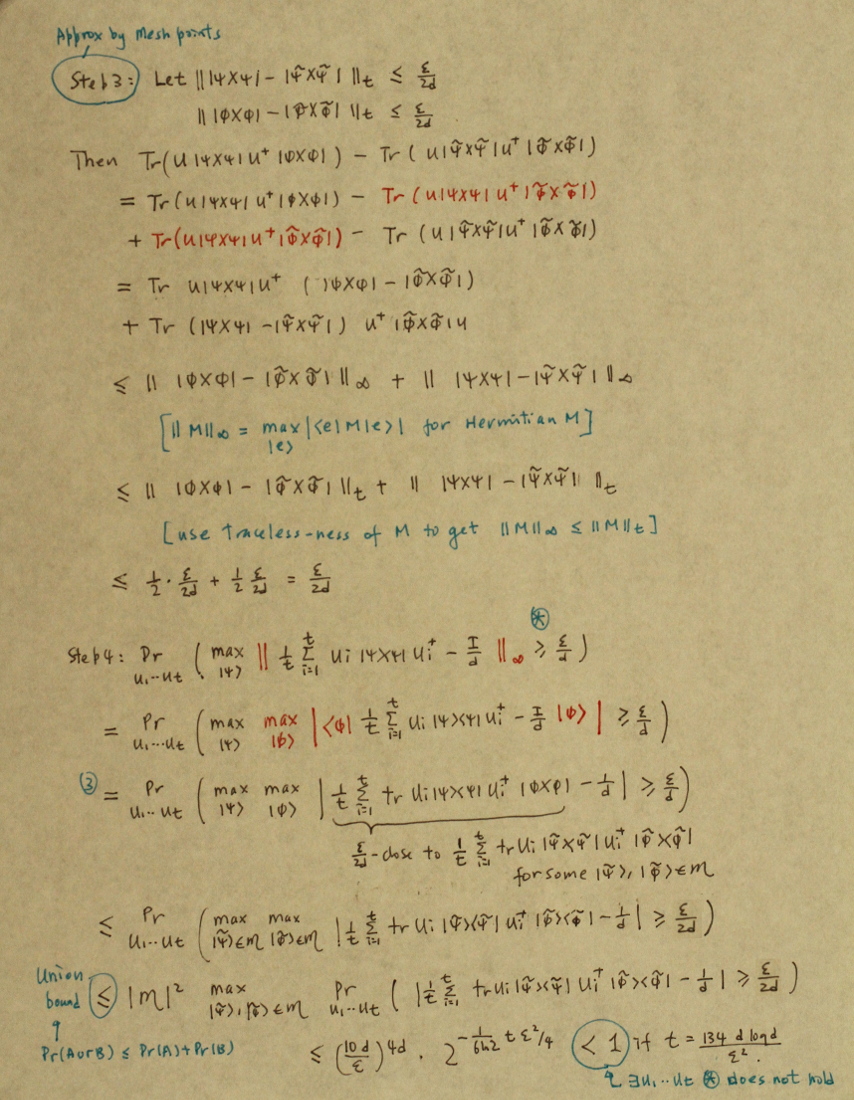 Approx by mesh points
Step 3: Let || |ψ〉〈ψ| - |ψ̃〉〈ψ̃| ||_t ≤ ε/2d
|| |φ〉〈φ| - |φ̃〉〈φ̃| ||_t ≤ ε/2d
Then Tr(U|ψ〉〈ψ|U† |φ〉〈φ|) - Tr(U|ψ̃〉〈ψ̃|U† |φ̃〉〈φ̃|)
= Tr(U|ψ〉〈ψ|U†|φ〉〈φ|) - Tr(U|ψ〉〈ψ|U†|φ̃〉〈φ̃|)
+ Tr(U|ψ〉〈ψ|U†|φ̃〉〈φ̃|) - Tr(U|ψ̃〉〈ψ̃|U†|φ̃〉〈φ̃|)
= Tr U|ψ〉〈ψ|U† (|φ〉〈φ| - |φ̃〉〈φ̃|)
+ Tr (|ψ〉〈ψ| - |ψ̃〉〈ψ̃|) U†|φ̃〉〈φ̃|U
≤ || |φ〉〈φ| - |φ̃〉〈φ̃| ||_∞ + || |ψ〉〈ψ| - |ψ̃〉〈ψ̃| ||_∞
[||M||_∞ = max_{|e〉} |〈e|M|e〉| for Hermitian M]
≤ || |φ〉〈φ| - |φ̃〉〈φ̃| ||_t + || |ψ〉〈ψ| - |ψ̃〉〈ψ̃| ||_t
[use traceless-ness of M to get ||M||_∞ ≤ ||M||_t]
≤ 1/2 · ε/2d + 1/2 ε/2d = ε/2d
Step 4: Pr_{U₁⋯U_t} ( max_{|ψ〉} || 1/t Σ_{i=1}^t U_i |ψ〉〈ψ| U_i† - I/d ||_∞ ≥ ε/d ) ⊛
= Pr_{U₁⋯U_t} ( max_{|ψ〉} max_{|φ〉} |〈φ| 1/t Σ_{i=1}^t U_i |ψ〉〈ψ| U_i† - I/d |φ〉| ≥ ε/d )
③ = Pr_{U₁⋯U_t} ( max_{|ψ〉} max_{|φ〉} | 1/t Σ_{i=1}^t tr U_i |ψ〉〈ψ| U_i† |φ〉〈φ| - 1/d | ≥ ε/d )
ε/2d-close to 1/t Σ_{i=1}^t tr U_i |ψ̃〉〈ψ̃| U_i† |φ̃〉〈φ̃|
for some |ψ̃〉, |φ̃〉 ∈ m
≤ Pr_{U₁⋯U_t} ( max_{|ψ̃〉∈m} max_{|φ̃〉∈m} | 1/t Σ_{i=1}^t tr U_i |ψ̃〉〈ψ̃| U_i† |φ̃〉〈φ̃| - 1/d | ≥ ε/2d )
Union bound ≤ |m|² max_{|ψ̃〉,|φ̃〉∈m} Pr_{U₁⋯U_t} ( | 1/t Σ_{i=1}^t tr U_i |ψ̃〉〈ψ̃| U_i† |φ̃〉〈φ̃| - 1/d | ≥ ε/2d )
Pr(A or B) ≤ Pr(A) + Pr(B)
≤ (10d/ε)^{4d} · 2^{-1/(6 ln 2) t ε²/4} < 1 if t = 134 d log d / ε².
∃ U₁⋯U_t ⊛ does not hold